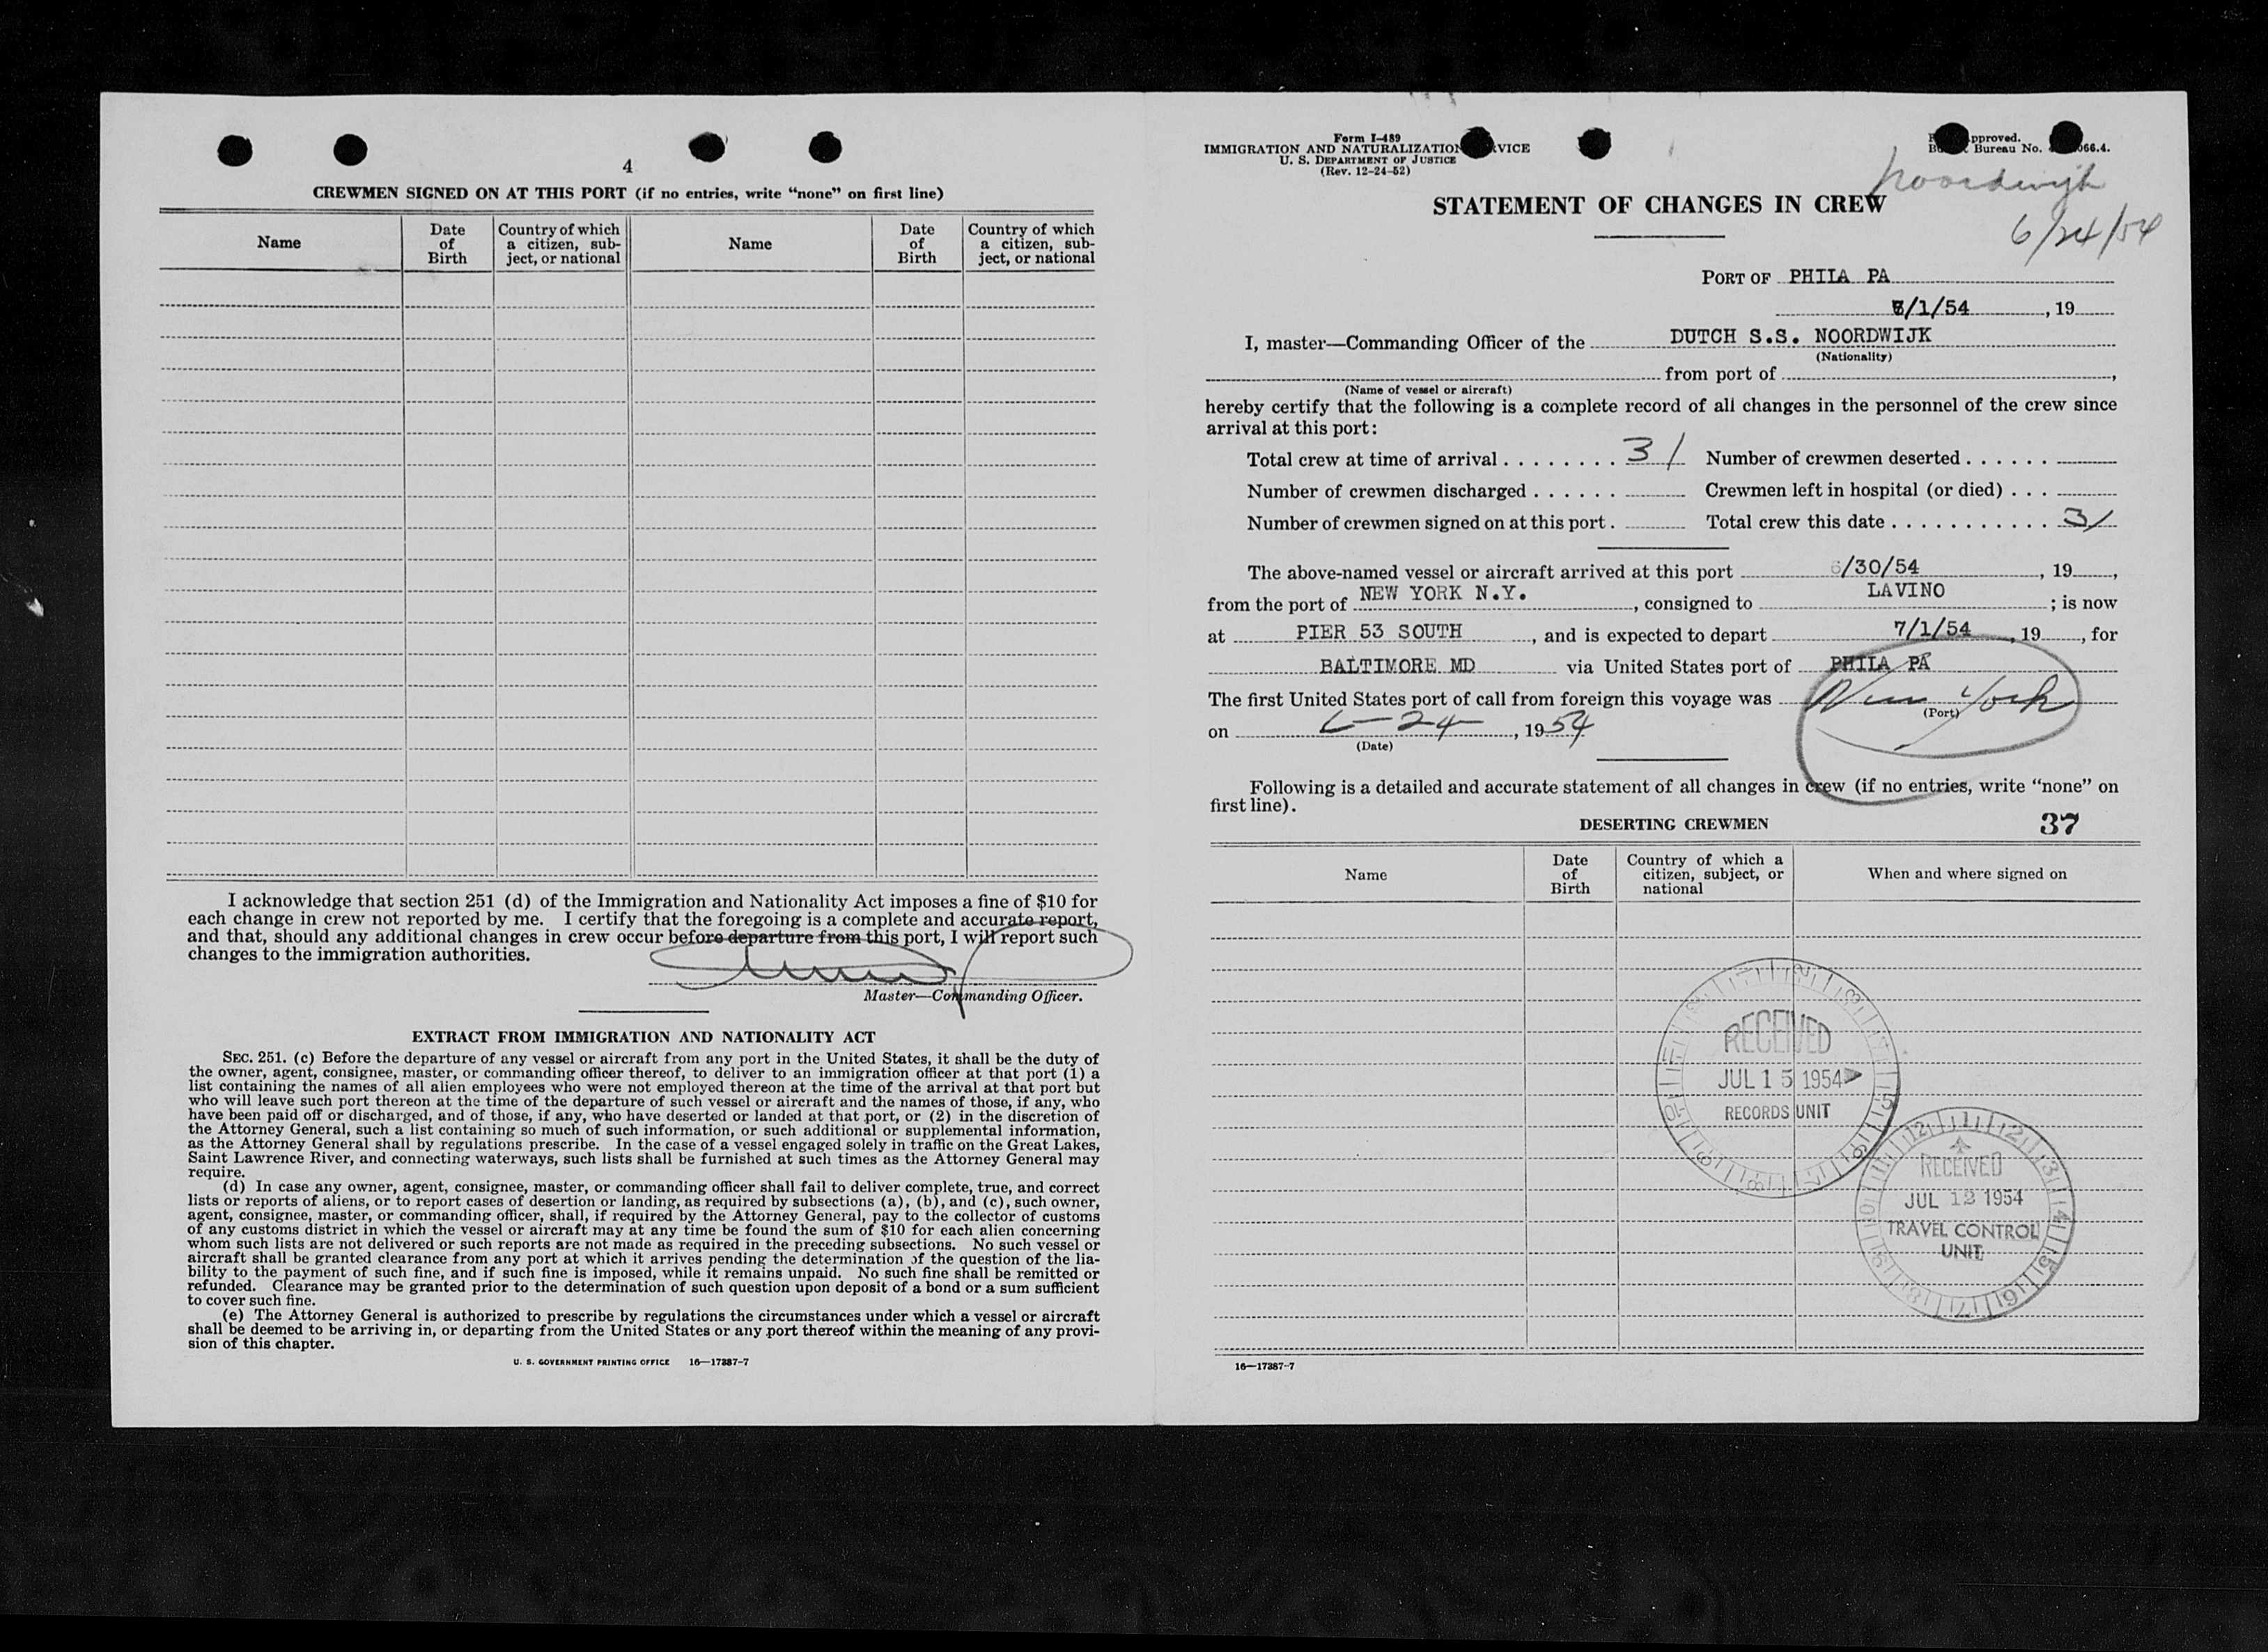 4
CREWMEN SIGNED ON AT THIS PORT (if no entries, write “none” on first line)
Name
Date of Birth
Country of which a citizen, sub-ject, or national
Name
Date of Birth
Country of which a citizen, sub-ject, or national
I acknowledge that section 251 (d) of the Immigration and Nationality Act imposes a fine of $10 for
each change in crew not reported by me. I certify that the foregoing is a complete and accurate report,
and that, should any additional changes in crew occur before departure from this port, I will report such
changes to the immigration authorities.
Master—Commanding Officer.
EXTRACT FROM IMMIGRATION AND NATIONALITY ACT
SEC. 251. (c) Before the departure of any vessel or aircraft from any port in the United States, it shall be the duty of
the owner, agent, consignee, master, or commanding officer thereof, to deliver to an immigration officer at that port (1) a
list containing the names of all alien employees who were not employed thereon at the time of the arrival at that port but
who will leave such port thereon at the time of the departure of such vessel or aircraft and the names of those, if any, who
have been paid off or discharged, and of those, if any, who have deserted or landed at that port, or (2) in the discretion of
the Attorney General, such a list containing so much of such information, or such additional or supplemental information,
as the Attorney General shall by regulations prescribe. In the case of a vessel engaged solely in traffic on the Great Lakes,
Saint Lawrence River, and connecting waterways, such lists shall be furnished at such times as the Attorney General may
require.
(d) In case any owner, agent, consignee, master, or commanding officer shall fail to deliver complete, true, and correct
lists or reports of aliens, or to report cases of desertion or landing, as required by subsections (a), (b), and (c), such owner,
agent, consignee, master, or commanding officer, shall, if required by the Attorney General, pay to the collector of customs
of any customs district in which the vessel or aircraft may at any time be found the sum of $10 for each alien concerning
whom such lists are not delivered or such reports are not made as required in the preceding subsections. No such vessel or
aircraft shall be granted clearance from any port at which it arrives pending the determination of the question of the lia-
bility to the payment of such fine, and if such fine is imposed, while it remains unpaid. No such fine shall be remitted or
refunded. Clearance may be granted prior to the determination of such question upon deposit of a bond or a sum sufficient
to cover such fine.
(e) The Attorney General is authorized to prescribe by regulations the circumstances under which a vessel or aircraft
shall be deemed to be arriving in, or departing from the United States or any port thereof within the meaning of any provi-
sion of this chapter.
U. S. GOVERNMENT PRINTING OFFICE 16—17387-7
Form I-489
IMMIGRATION AND NATURALIZATION VICE
U. S. DEPARTMENT OF JUSTICE
(Rev. 12-24-52)
pproved.
Bureau No. 066.4.
Noordwijk
6/24/54
STATEMENT OF CHANGES IN CREW
PORT OF PHILA PA
/1/54, 19
I, master—Commanding Officer of the DUTCH S.S. NOORDWIJK
(Nationality)
from port of ,
(Name of vessel or aircraft)
hereby certify that the following is a complete record of all changes in the personnel of the crew since
arrival at this port:
Total crew at time of arrival . . . . . . . . 31 Number of crewmen deserted . . . . . .
Number of crewmen discharged . . . . . . Crewmen left in hospital (or died) . . .
Number of crewmen signed on at this port . Total crew this date . . . . . . . . . . . 31
The above-named vessel or aircraft arrived at this port 6/30/54, 19 ,
from the port of NEW YORK N.Y., consigned to LAVINO; is now
at PIER 53 SOUTH, and is expected to depart 7/1/54, 19 , for
BALTIMORE MD via United States port of PHILA PA
The first United States port of call from foreign this voyage was New York
(Port)
on 6-24-, 1954
(Date)
Following is a detailed and accurate statement of all changes in crew (if no entries, write “none” on
first line).
DESERTING CREWMEN 37
Name
Date of Birth
Country of which a citizen, subject, or national
When and where signed on
RECEIVED
JUL 15 1954
RECORDS UNIT
RECEIVED
JUL 12 1954
TRAVEL CONTROL
UNIT
16—17387-7